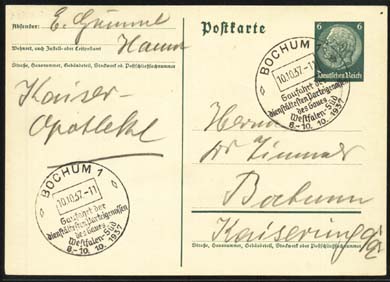 Absender: E. Gummel
Hamm
Wohnort, auch Zustell- oder Leitpostamt
Straße, Hausnummer, Gebäudeteil, Stockwerk od. Postschließfachnummer
Kaiser-
Apotheke
BOCHUM 1
10.10.37.-11
Gaufahrt der
dienstältesten Parteigenossen
des Gaues
Westfalen-Süd
8.-10. 10. 1937
Postkarte
6 6
Deutsches Reich
BOCHUM
10.10.37.-11
Gaufahrt der
dienstältesten Parteigenossen
des Gaues
Westfalen-Süd
8.-10. 10. 1937
Herrn
Dr
Bochum
Kaiserring
Straße, Hausnummer, Gebäudeteil, Stockwerk oder Postschließfachnummer